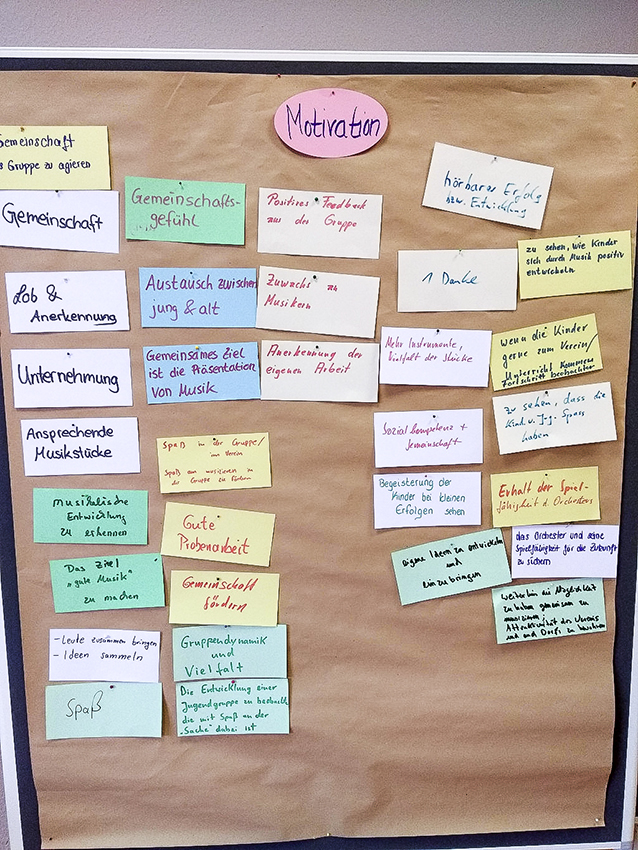 Motivation
Gemeinschaft
Gruppe zu agieren
Gemeinschaft
Lob &
Anerkennung
Unternehmung
Ansprechende
Musikstücke
musikalische
Entwicklung
zu erkennen
Das Ziel
"gute Musik"
zu machen
- Leute zusammen bringen
- Ideen sammeln
Spaß
Gemeinschafts-
gefühl
Austausch zwischen
jung & alt
Gemeinsames Ziel
ist die Präsentation
von Musik
Spaß in der Gruppe/
im Verein
Spaß am musizieren in
der Gruppe zu fördern
Gute
Probenarbeit
Gemeinschaft
fördern
Gruppendynamik
und
Vielfalt
Die Entwicklung einer
Jugendgruppe zu beobacht
die mit Spaß an der
"Sache" dabei ist
Positives Feedback
aus der Gruppe
Zuwachs an
Musikern
Anerkennung der
eigenen Arbeit
hörbarer Erfolg
bzw. Entwicklung
1 Danke
Mehr Instrumente,
Vielfalt der Stücke
Sozialkompetenz +
Gemeinschaft
Begeisterung der
Kinder bei kleinen
Erfolgen sehen
eigene Ideen zu entwickeln
und
einzubringen
zu sehen, wie Kinder
sich durch Musik positiv
entwickeln
wenn die Kinder
gerne zum Verein/
Unterricht kommen
Fortschritt beobachten
Zu sehen, dass die
Kind. u. Jug. Spass
haben
Erhalt der Spiel-
fähigkeit d. Orchesters
das Orchester und seine
Spielfähigkeit für die Zukunft
zu sichern
weiterhin die Möglichkeit
zu haben gemeinsam zu
musizieren,
Attraktivität des Vereins
und Dorfs zu